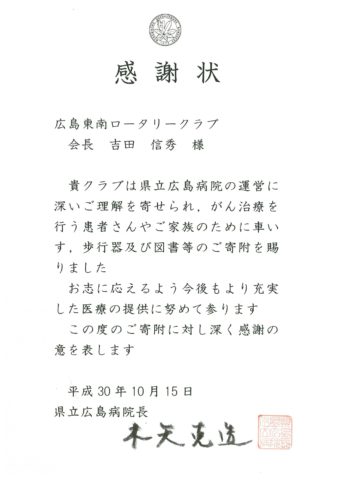 感謝状
広島東南ロータリークラブ
会長 吉田 信秀 様
貴クラブは県立広島病院の運営に
深いご理解を寄せられ、がん治療を
行う患者さんやご家族のために車い
す，歩行器及び図書等のご寄附を賜
りました
お志に応えるよう今後もより充実
した医療の提供に努めて参ります
この度のご寄附に対し深く感謝の
意を表します
平成30年10月15日
県立広島病院長
木矢克造